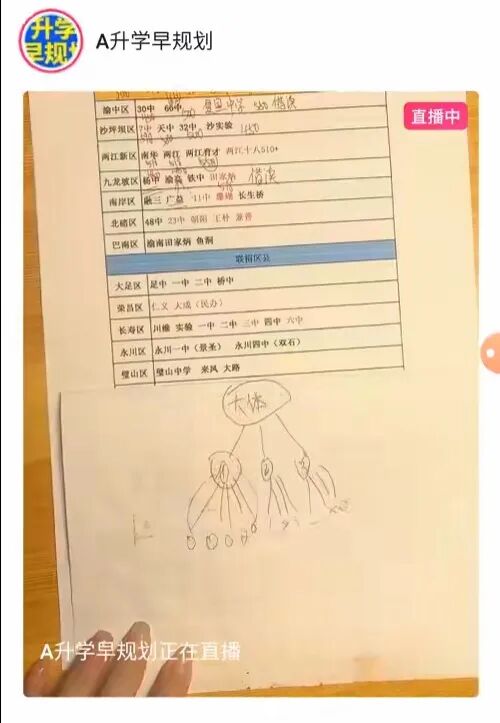 升学
早规划
A升学早规划
直播中
渝中区 30中 66中 复旦中学 560 借读
沙坪坝区 7中 天中 32中 沙实验
两江新区 南华 两江 两江育才 两江十八510+
九龙坡区 杨中 渝高 铁中 田家炳 借读
南岸区 融三 广益 11中 珊瑚 长生桥
北碚区 48中 23中 朝阳 王朴 兼善
巴南区 渝南田家炳 鱼洞
联招区县
大足区 足中 一中 二中 桥中
荣昌区 仁义 大成（民办）
长寿区 川维 实验 一中 二中 三中 四中 六中
永川区 永川一中（景圣） 永川四中（双石）
璧山区 璧山中学 来凤 大路
大体
A升学早规划正在直播